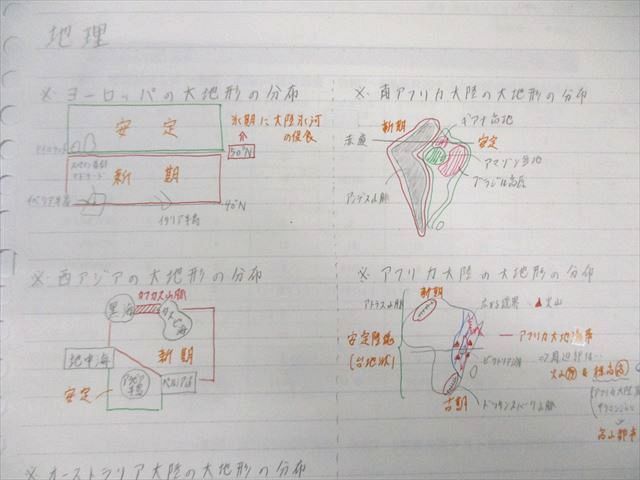 地理
※ヨーロッパの大地形の分布
安定
氷期に大陸氷河の侵食
50°N
新期
40°N
イベリア半島
イタリア半島
※南アフリカ大陸の大地形の分布
新期
ギアナ高地
赤道
安定
アマゾン盆地
ブラジル高原
アンデス山脈
※西アジアの大地形の分布
カフカス山脈
黒海
カスピ海
地中海
新期
安定
ペルシア湾
※アフリカ大陸の大地形の分布
新期
アトラス山脈
広がる境界
▲火山
安定陸塊
(台地状)
アフリカ大地溝帯
ビクトリア湖
⇒周辺部は…
古期
ドラケンスバーグ山脈
アフリカ大陸
高山都市
※オーストラリア大陸の大地形の分布